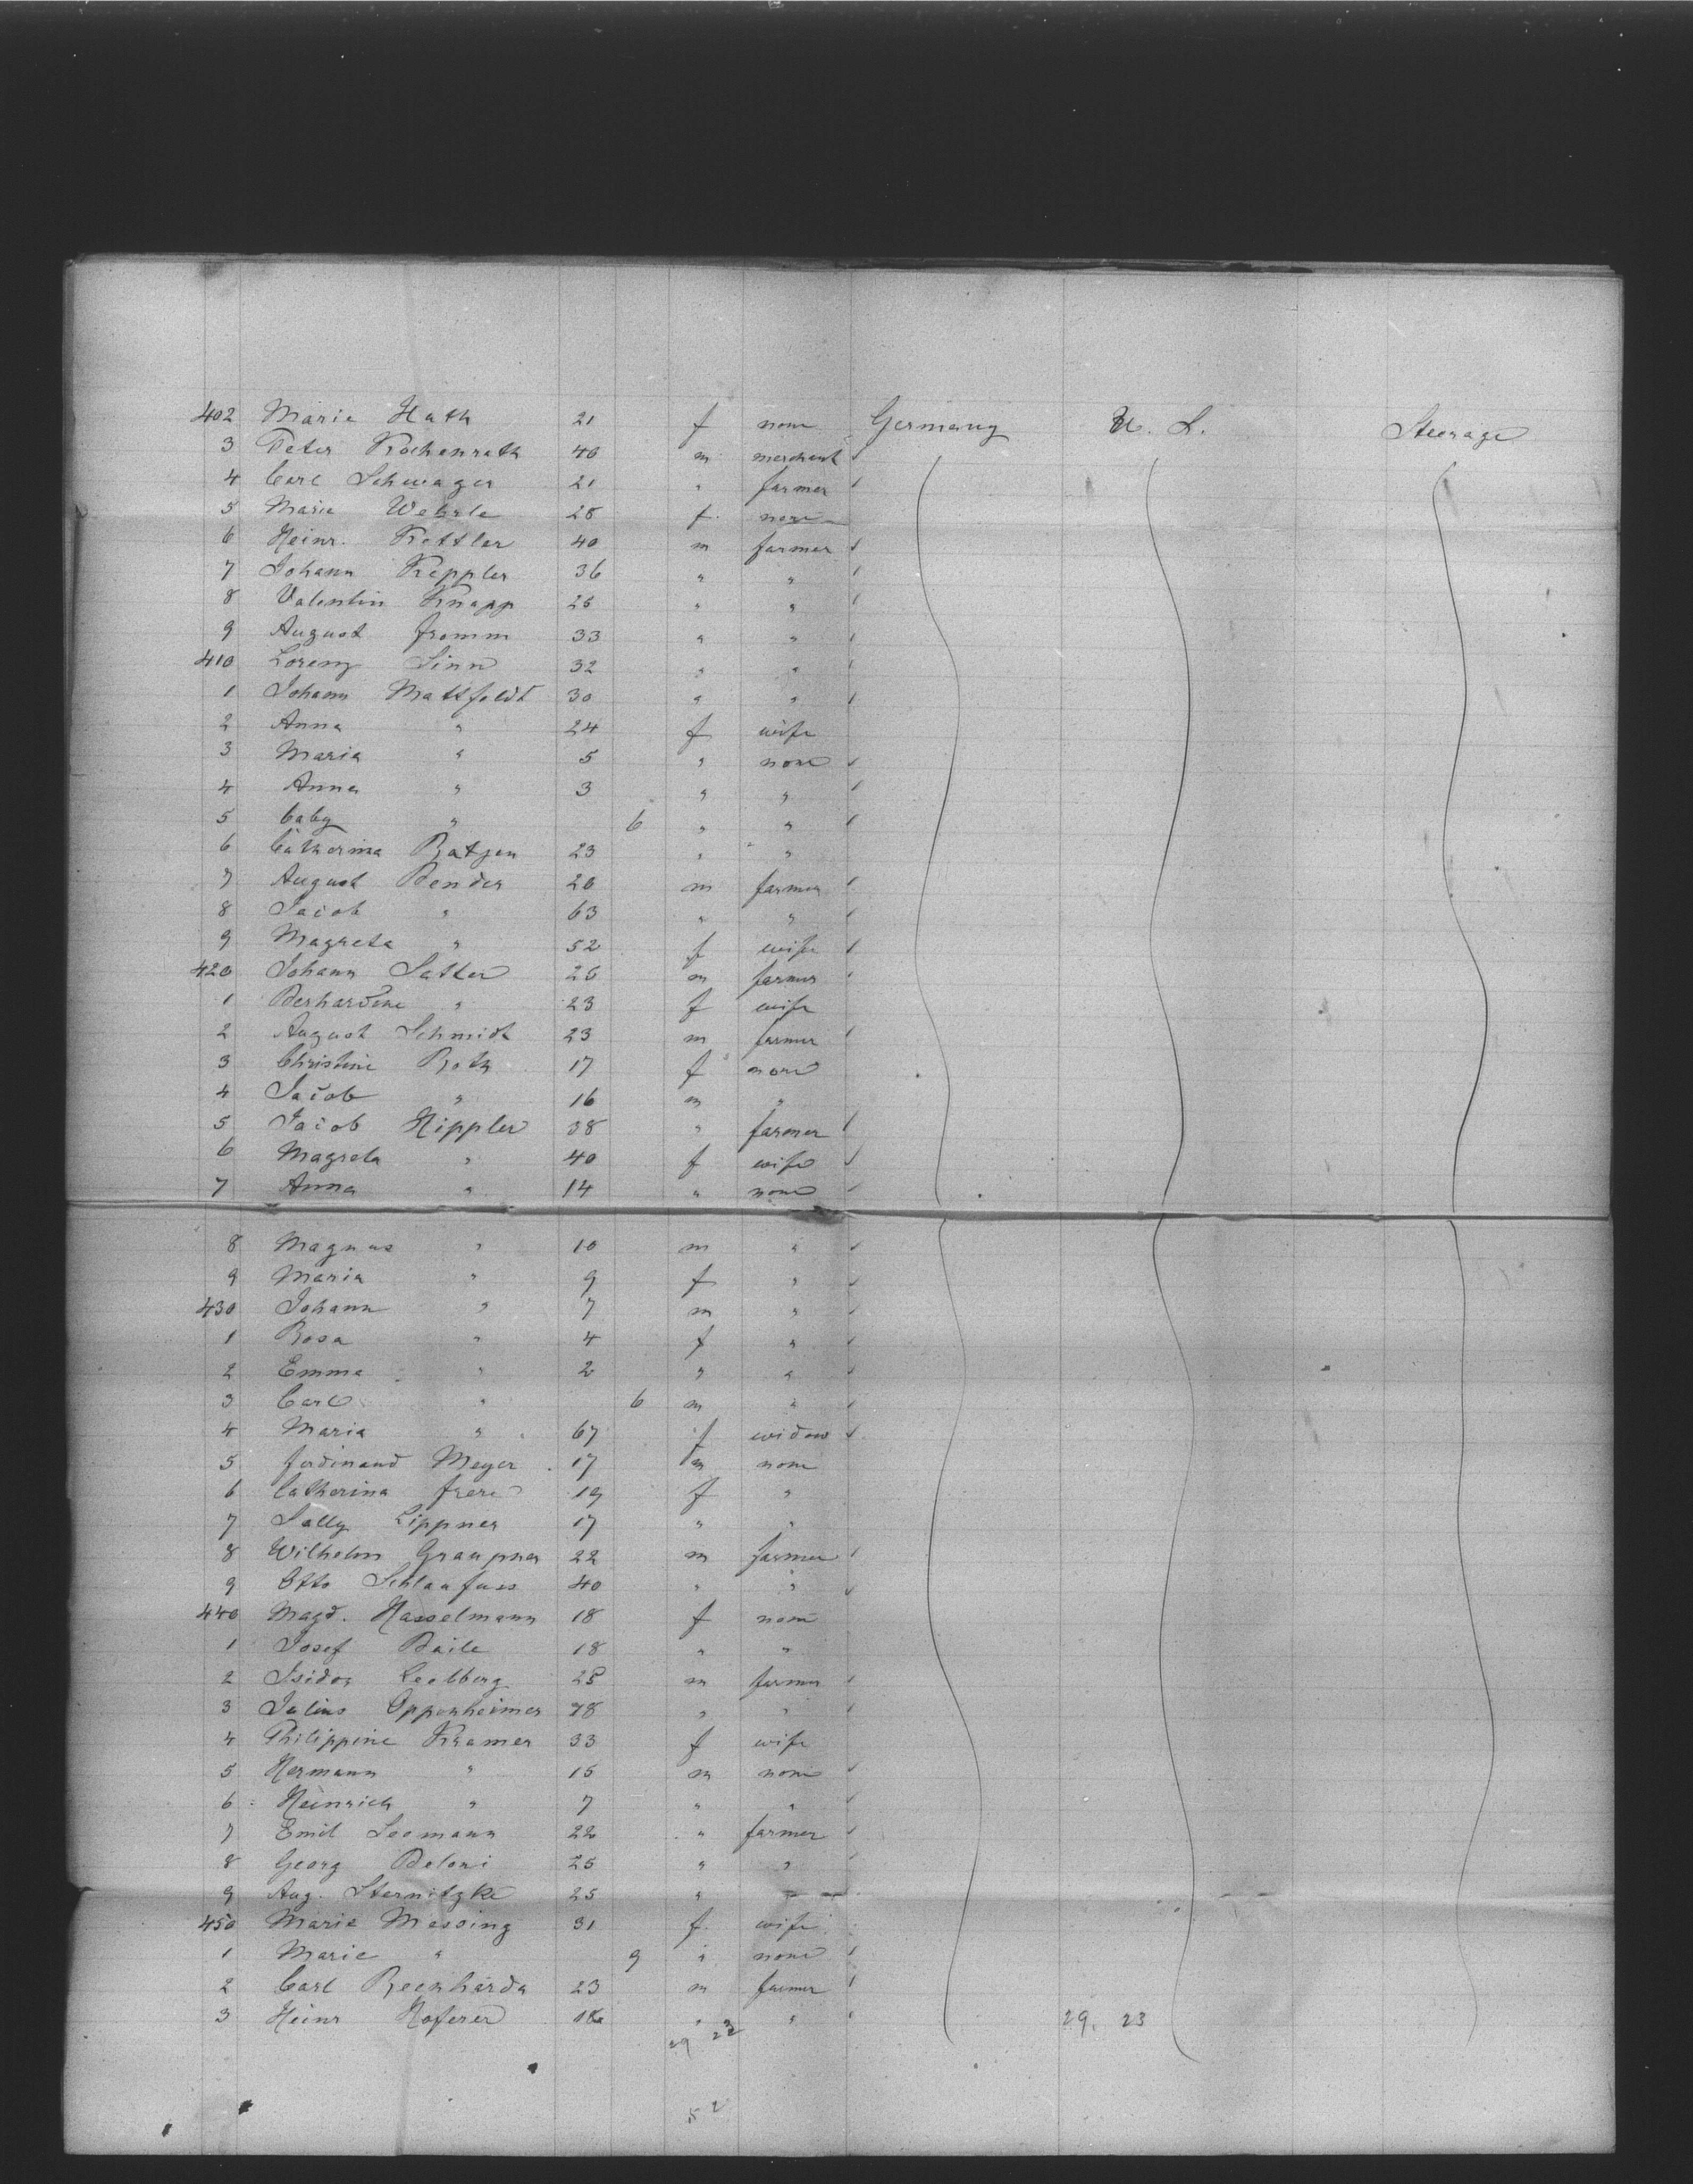 402 Marie Huth 21 f none Germany U. S. Steerage
3 Peter Kochenrath 40 m merchant
4 Carl Schwager 21 " farmer
5 Marie Wehrle 28 f. none
6 Heinr. Kettler 40 m farmer
7 Johann Keppler 36 " "
8 Valentin Knapp 26 " "
9 August Fromm 33 " "
410 Lorenz Sinn 32 " "
1 Johann Mattfeldt 30 " "
2 Anna " 24 f wife
3 Maria " 5 " none
4 Anna " 3 " "
5 baby " 6 " "
6 Catherina Ratjen 23 " "
7 August Bender 26 m farmer
8 Jacob " 63 " "
9 Magreta " 52 f wife
420 Johann Satter 26 m farmer
1 Berhardine " 23 f wife
2 August Schmidt 23 m farmer
3 Christine Roth 17 f none
4 Jacob " 16 m "
5 Jacob Hippler 38 " farmer
6 Magreta " 40 f wife
7 Anna " 14 " none
8 Magnus " 10 m "
9 Maria " 9 f "
430 Johann " 7 m "
1 Rosa " 4 f "
2 Emma " 2 " "
3 Carl " 6 m "
4 Maria " 67 f widow
5 Ferdinand Meyer 17 m none
6 Catherina Frere 19 f "
7 Sally Lippner 17 " "
8 Wilhelm Graupner 22 m farmer
9 Otto Schlaufuss 40 " "
440 Magd. Hasselmann 18 f none
1 Josef Baile 18 " "
2 Isidor 25 m farmer
3 Julius Oppenheimer 28 " "
4 Philippine Kramer 33 f wife
5 Hermann " 15 m none
6 Heinrich " 7 " "
7 Emil Seemann 22 " farmer
8 Georg Beloni 25 " "
9 Aug. Sternitzke 25 " "
450 Marie Messing 31 f. wife
1 Marie " 9 " none
2 Carl 23 m farmer
3 Heinr Hoferer 18 " "
29 23 29. 23
52